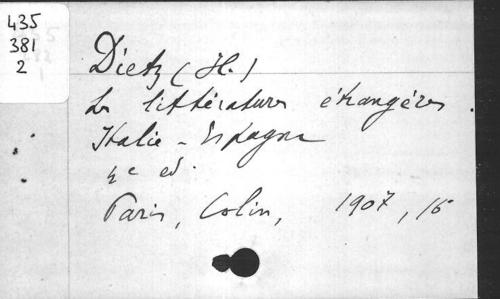 435
381
2
Dietz (H.)
Les littératures étrangères.
Italie - Espagne
4e ed.
Paris, Colin, 1907, 16°